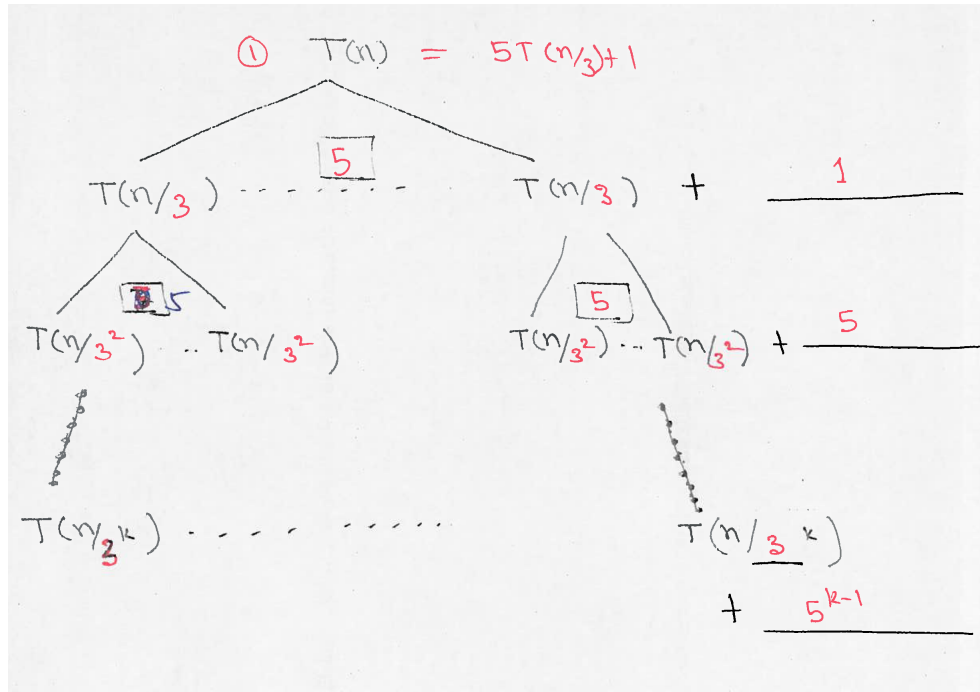 ① T(n) = 5T(n/3)+1
5
T(n/3) ........ T(n/3) + 1
5 5
T(n/3²) .. T(n/3²) T(n/3²) ... T(n/3²) + 5
T(n/3ᵏ) .......... T(n/3ᵏ)
+ 5ᵏ⁻¹